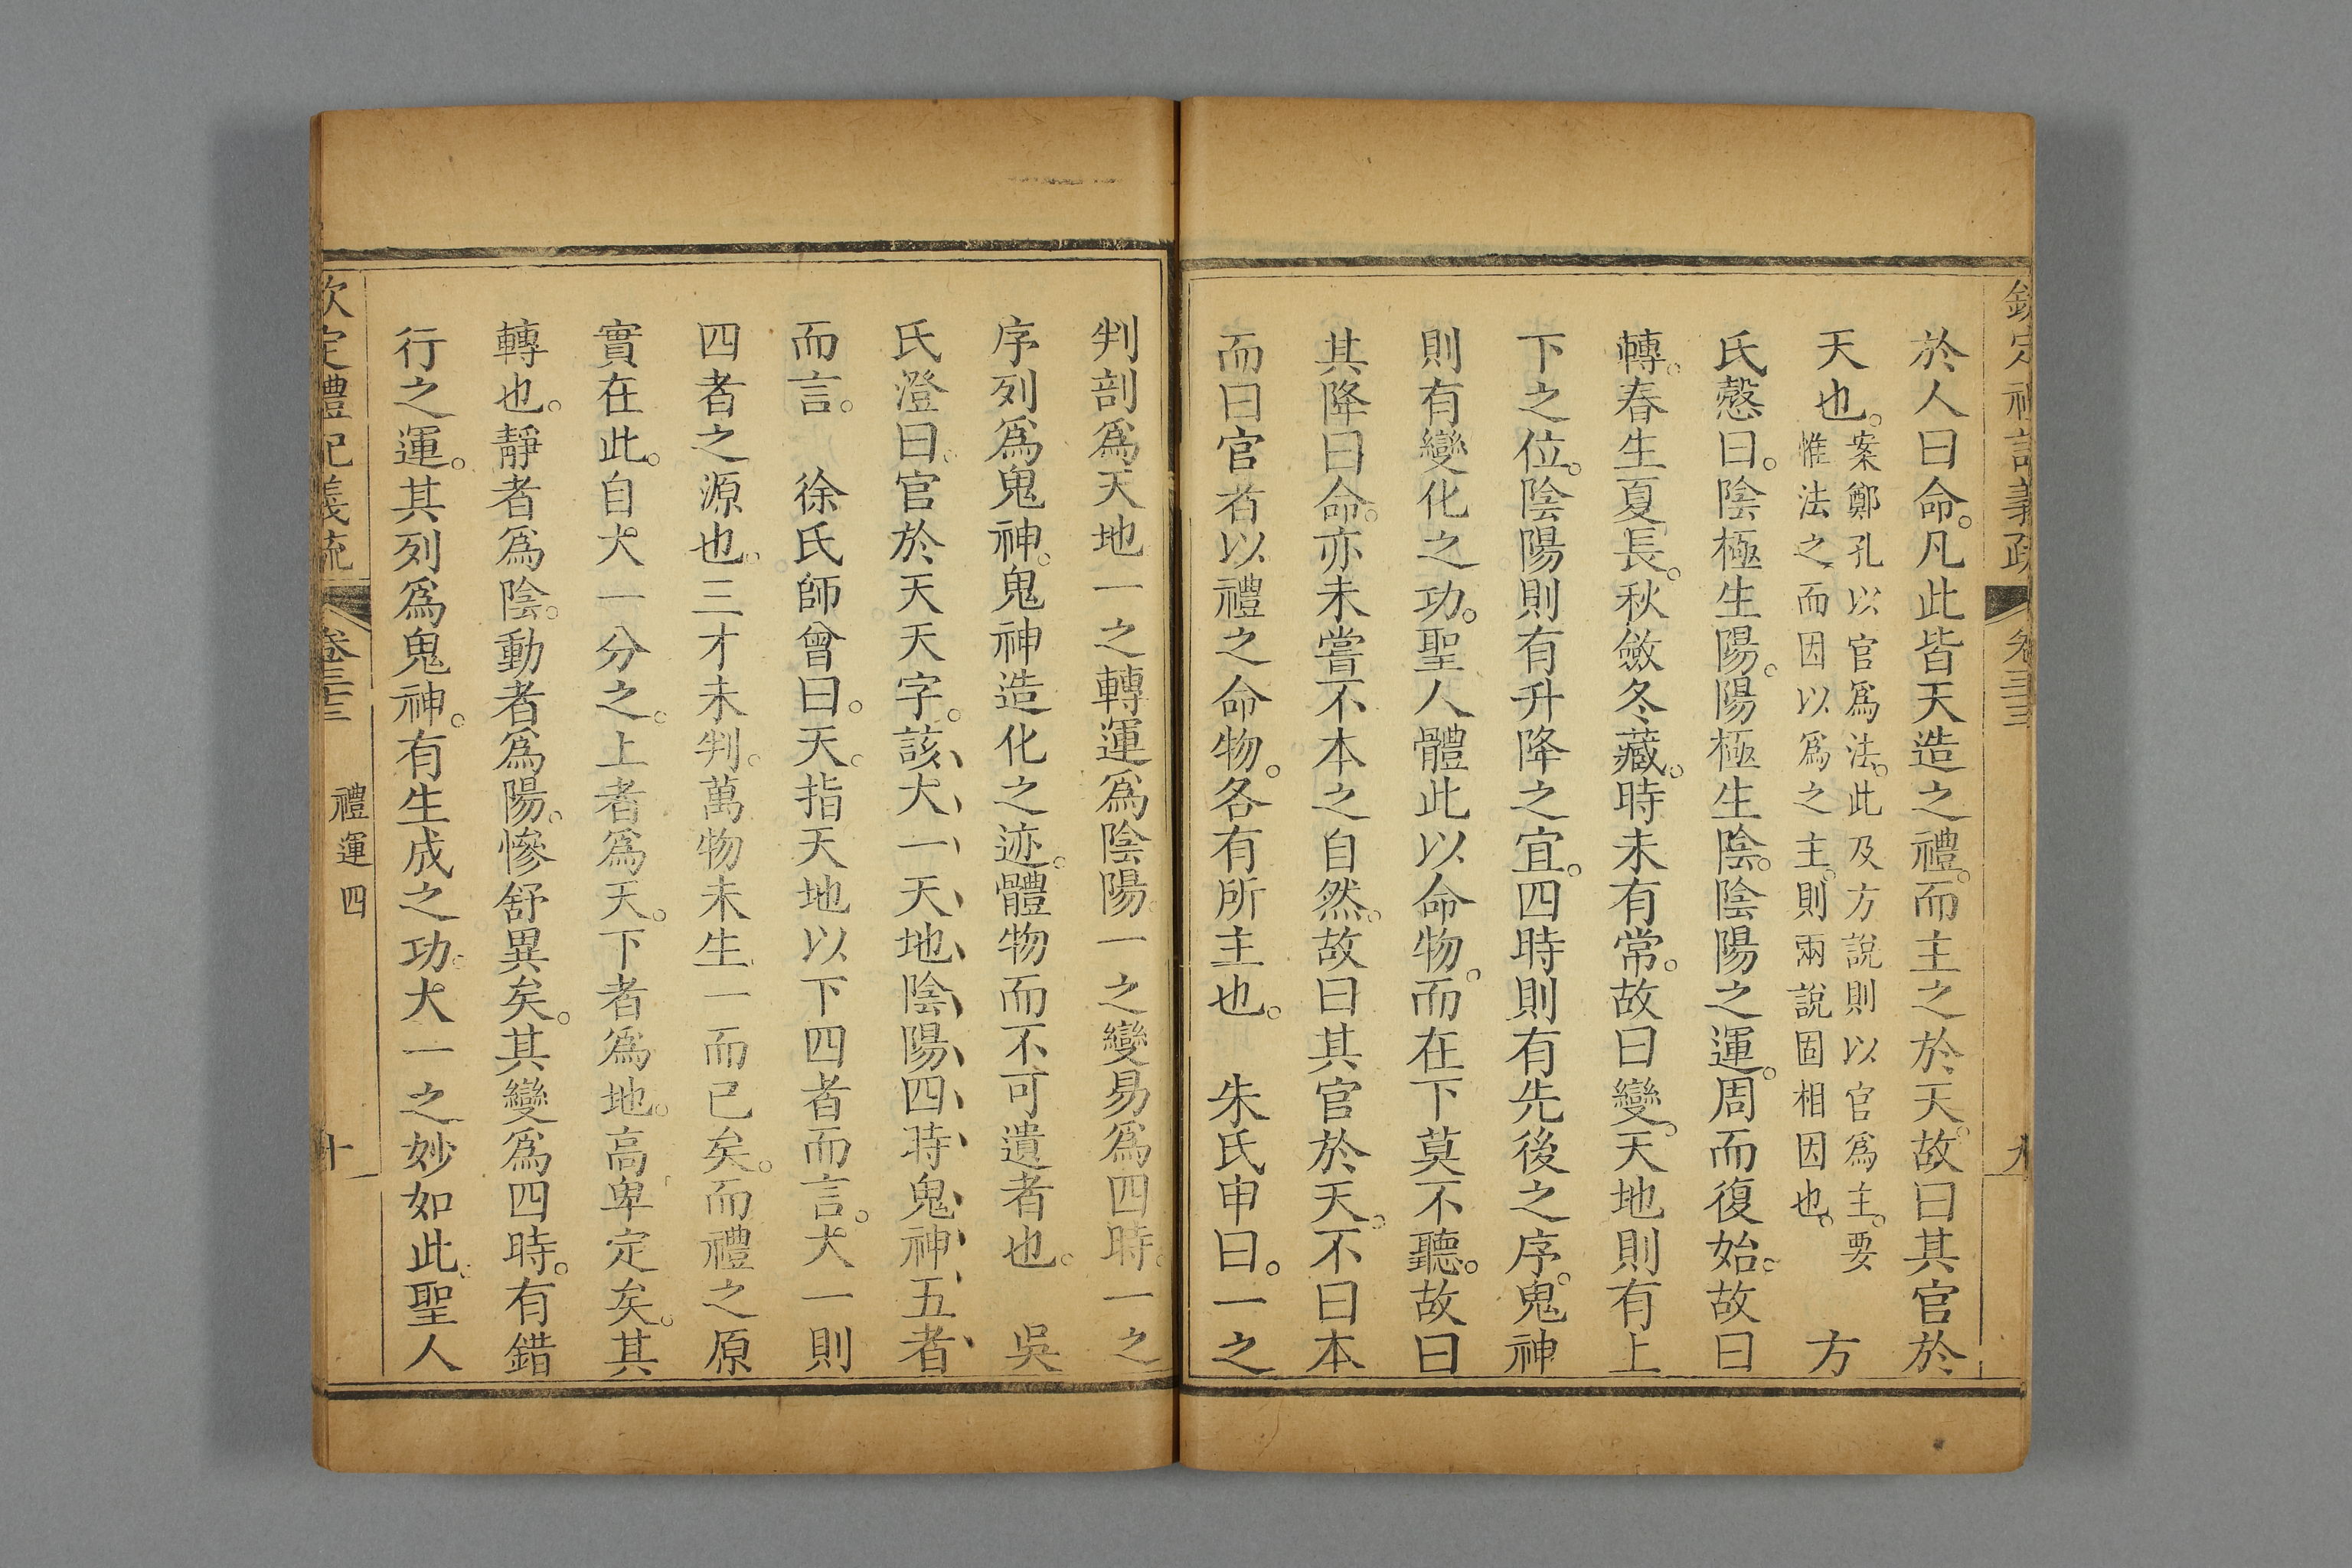 欽定禮記義疏 卷三十三 九
於人曰命。凡此皆天造之禮。而主之於天。故曰其官於
天也。案鄭孔以官爲法。此及方說則以官爲主。要
惟法之而因以爲之主。則兩說固相因也。 方
氏慤曰。陰極生陽。陽極生陰。陰陽之運。周而復始。故曰
轉。春生夏長。秋斂冬藏。時未有常。故曰變。天地則有上
下之位。陰陽則有升降之宜。四時則有先後之序。鬼神
則有變化之功。聖人體此以命物。而在下莫不聽。故曰
其降曰命。亦未嘗不本之自然。故曰其官於天。不曰本
而曰官者以禮之命物。各有所主也。 朱氏申曰。一之
判剖爲天地一之轉運爲陰陽。一之變易爲四時。一之
序列爲鬼神。鬼神造化之迹。體物而不可遺者也。 吳
氏澄曰。官於天天字。該大一天地陰陽四時鬼神五者
而言。 徐氏師曾曰。天。指天地以下四者而言。大一則
四者之源也。三才未判。萬物未生一而已矣。而禮之原
實在此。自大一分之。上者爲天。下者爲地。高卑定矣。其
轉也。靜者爲陰。動者爲陽。慘舒異矣。其變爲四時。有錯
行之運。其列爲鬼神。有生成之功。大一之妙如此。聖人
欽定禮記義疏 卷三十三 禮運四 十